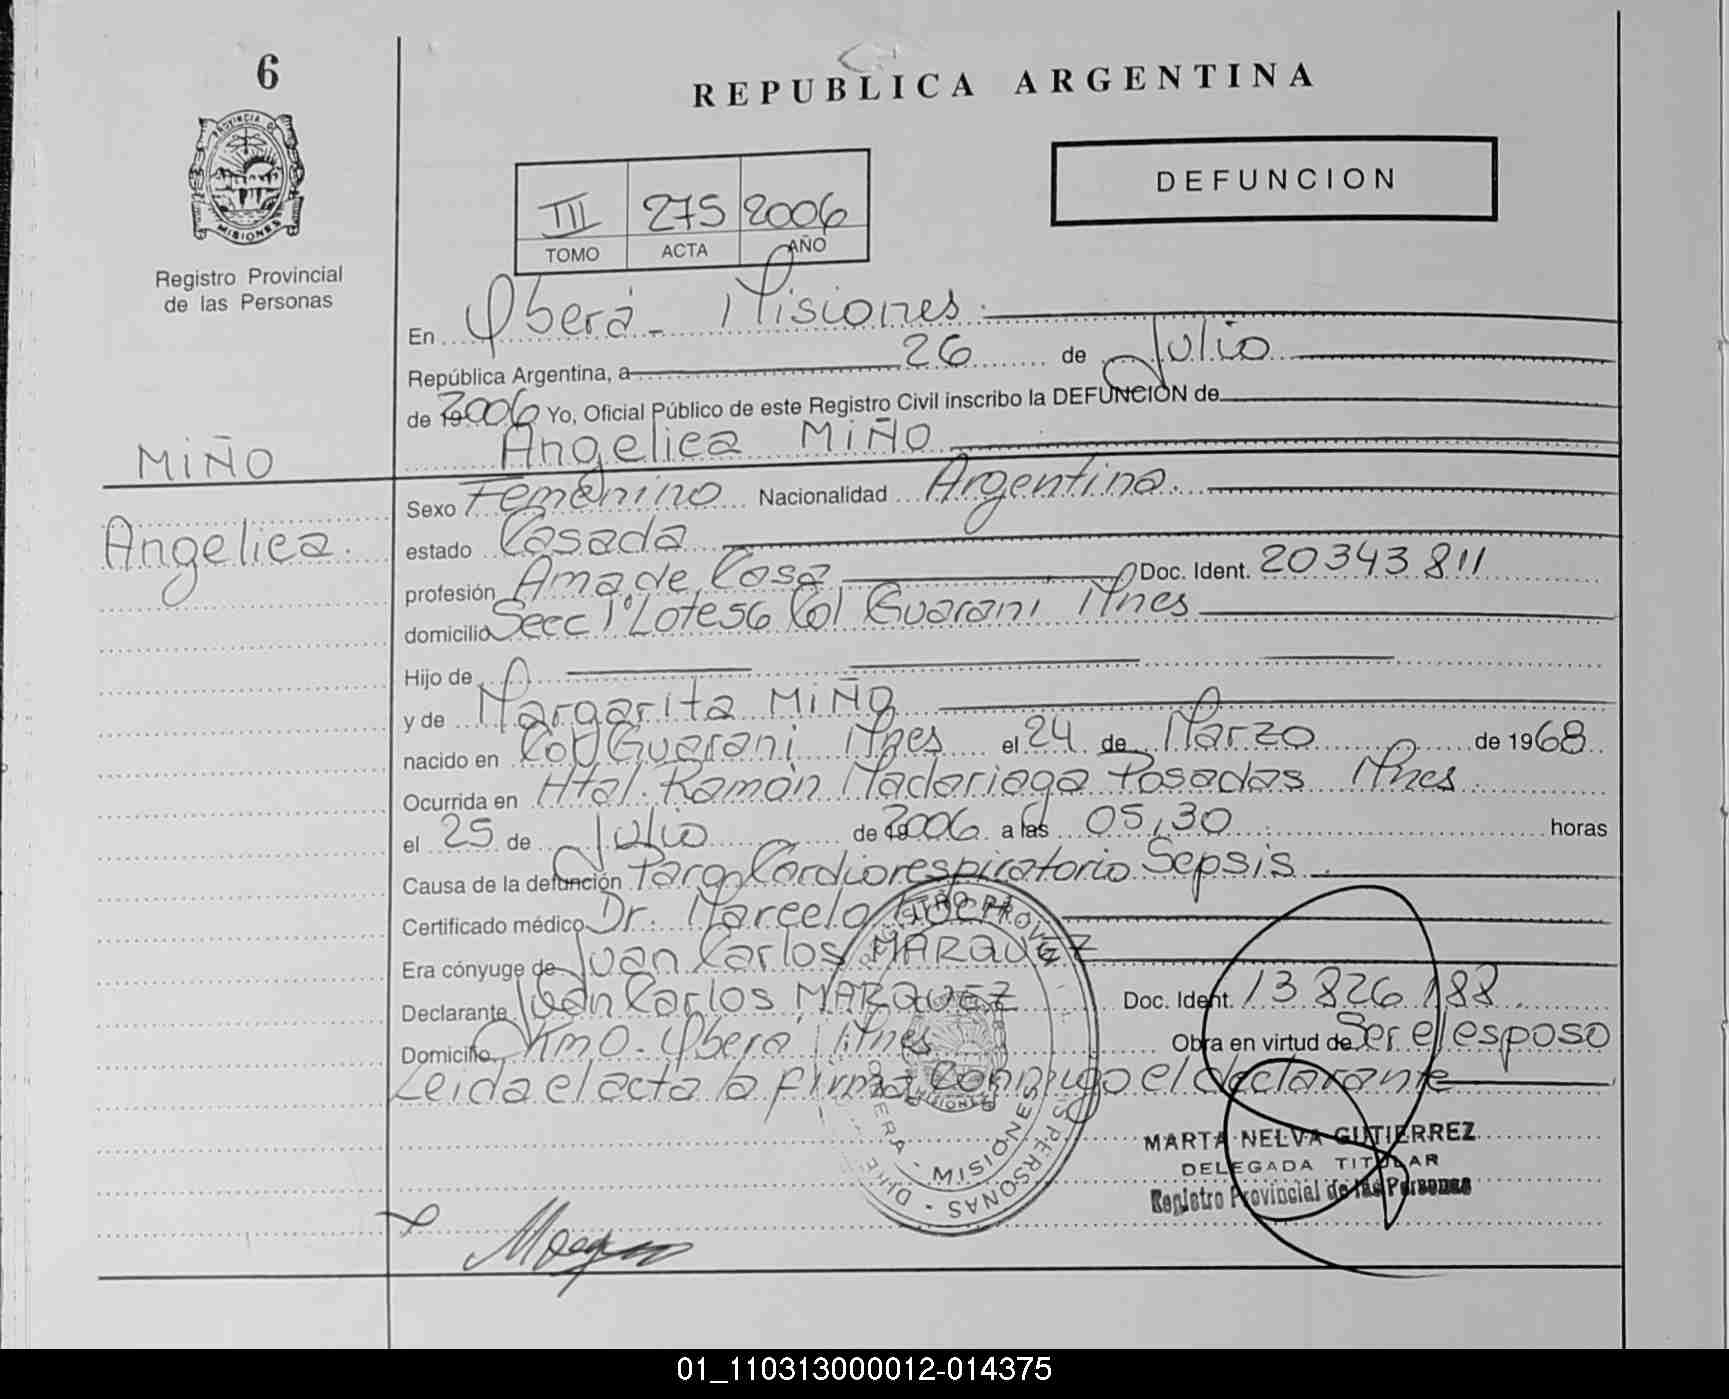 6
REPUBLICA ARGENTINA
PROVINCIA DE
MISIONES
DEFUNCION
III 275 2006
TOMO ACTA AÑO
Registro Provincial
de las Personas
En Oberá - Misiones
República Argentina, a 26 de Julio
de 2006 Yo, Oficial Público de este Registro Civil inscribo la DEFUNCION de
MIÑO
Angelica MIÑO
Sexo Femenino Nacionalidad Argentina
Angelica
estado Casada
profesión Ama de Casa Doc. Ident. 20343811
domicilio Secc 1° Lote 56 Col Guarani Mnes
Hijo de
y de Margarita MIÑO
nacido en Col Guarani Mnes el 24 de Marzo de 1968
Ocurrida en Htal. Ramón Madariaga Posadas Mnes
el 25 de Julio de 2006 a las 05,30 horas
Causa de la defunción Paro Cardiorespiratorio Sepsis
Certificado médico Dr. Marcelo
Era cónyuge de Juan Carlos MARQUEZ
Declarante Juan Carlos MARQUEZ Doc. Ident. 13.826.188
Domicilio Km 0 - Oberá Mnes Obra en virtud de Ser el esposo
Leida el acta la firma conmigo el declarante
MISIONES
MARTA NELVA GUTIERREZ
DELEGADA TITULAR
Registro Provincial de las Personas
01_110313000012-014375